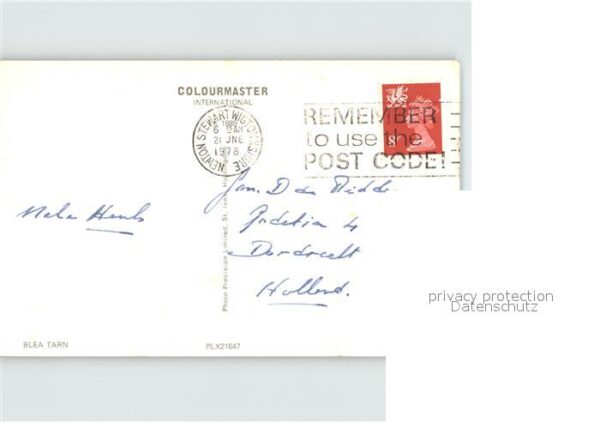 COLOURMASTER
INTERNATIONAL
NEWTON STEWART WIGTOWNSHIRE
6 15AM
21 JNE
1978
REMEMBER
to use the
POST CODE!
8
Fam. D den
4
Dordrecht
Holland.
Photo Precision Limited, St. Ives,
BLEA TARN
PLX21647
privacy protection
Datenschutz